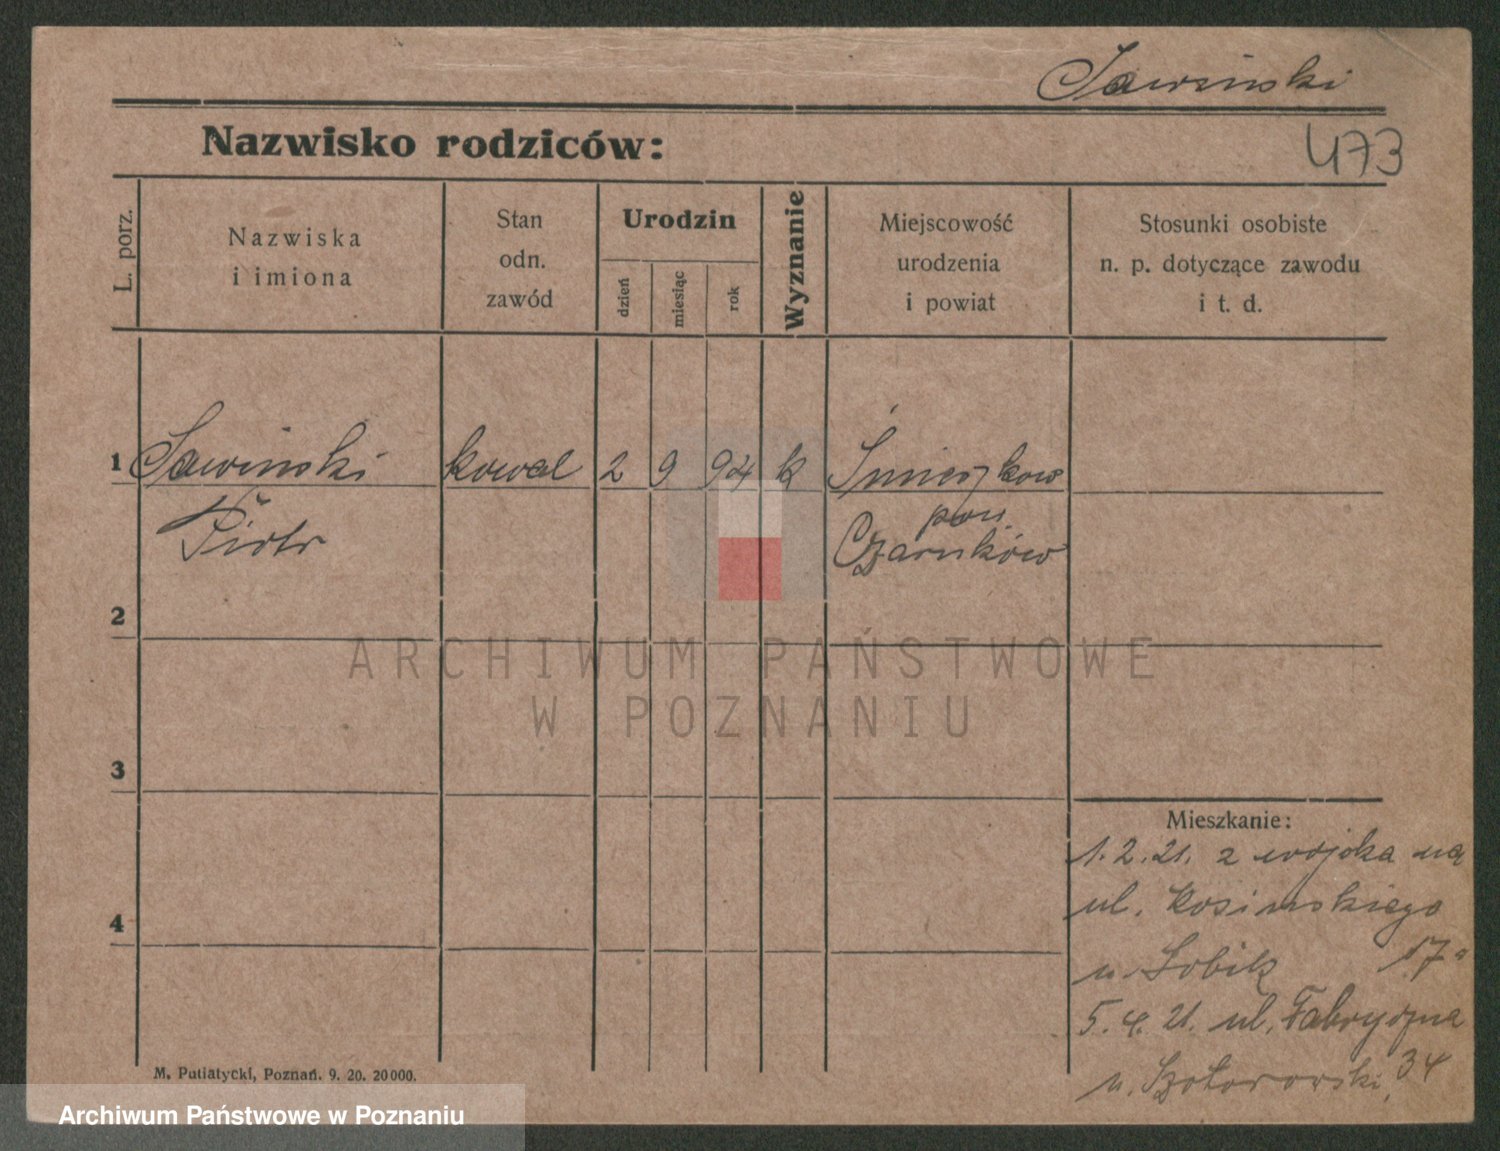 Sawinski
473
Nazwisko rodziców:
L. porz.
Nazwiska
i imiona
Stan
odn.
zawód
Urodzin
dzień
miesiąc
rok
Wyznanie
Miejscowość
urodzenia
i powiat
Stosunki osobiste
n. p. dotyczące zawodu
i t. d.
1 Sawinski kowal 2 9 94 k Śmieszkow
Piotr pow.
Czarnków
2
3
4
Mieszkanie:
1. 2. 21. z wojska na
ul. Kosinskiego
u. Sobik 17a
5. 4. 21 ul. Fabryczna
u. 34
M. Putiatycki, Poznań. 9. 20. 20000.
ARCHIWUM PAŃSTWOWE
W POZNANIU
Archiwum Państwowe w Poznaniu